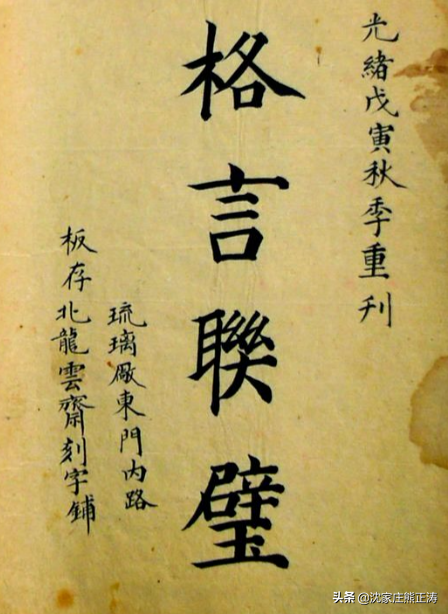 光緒戊寅秋季重刋
格言聯璧
琉璃厰東門内路
板存北龍雲齋刻字鋪
头条 @沈家庄熊正涛